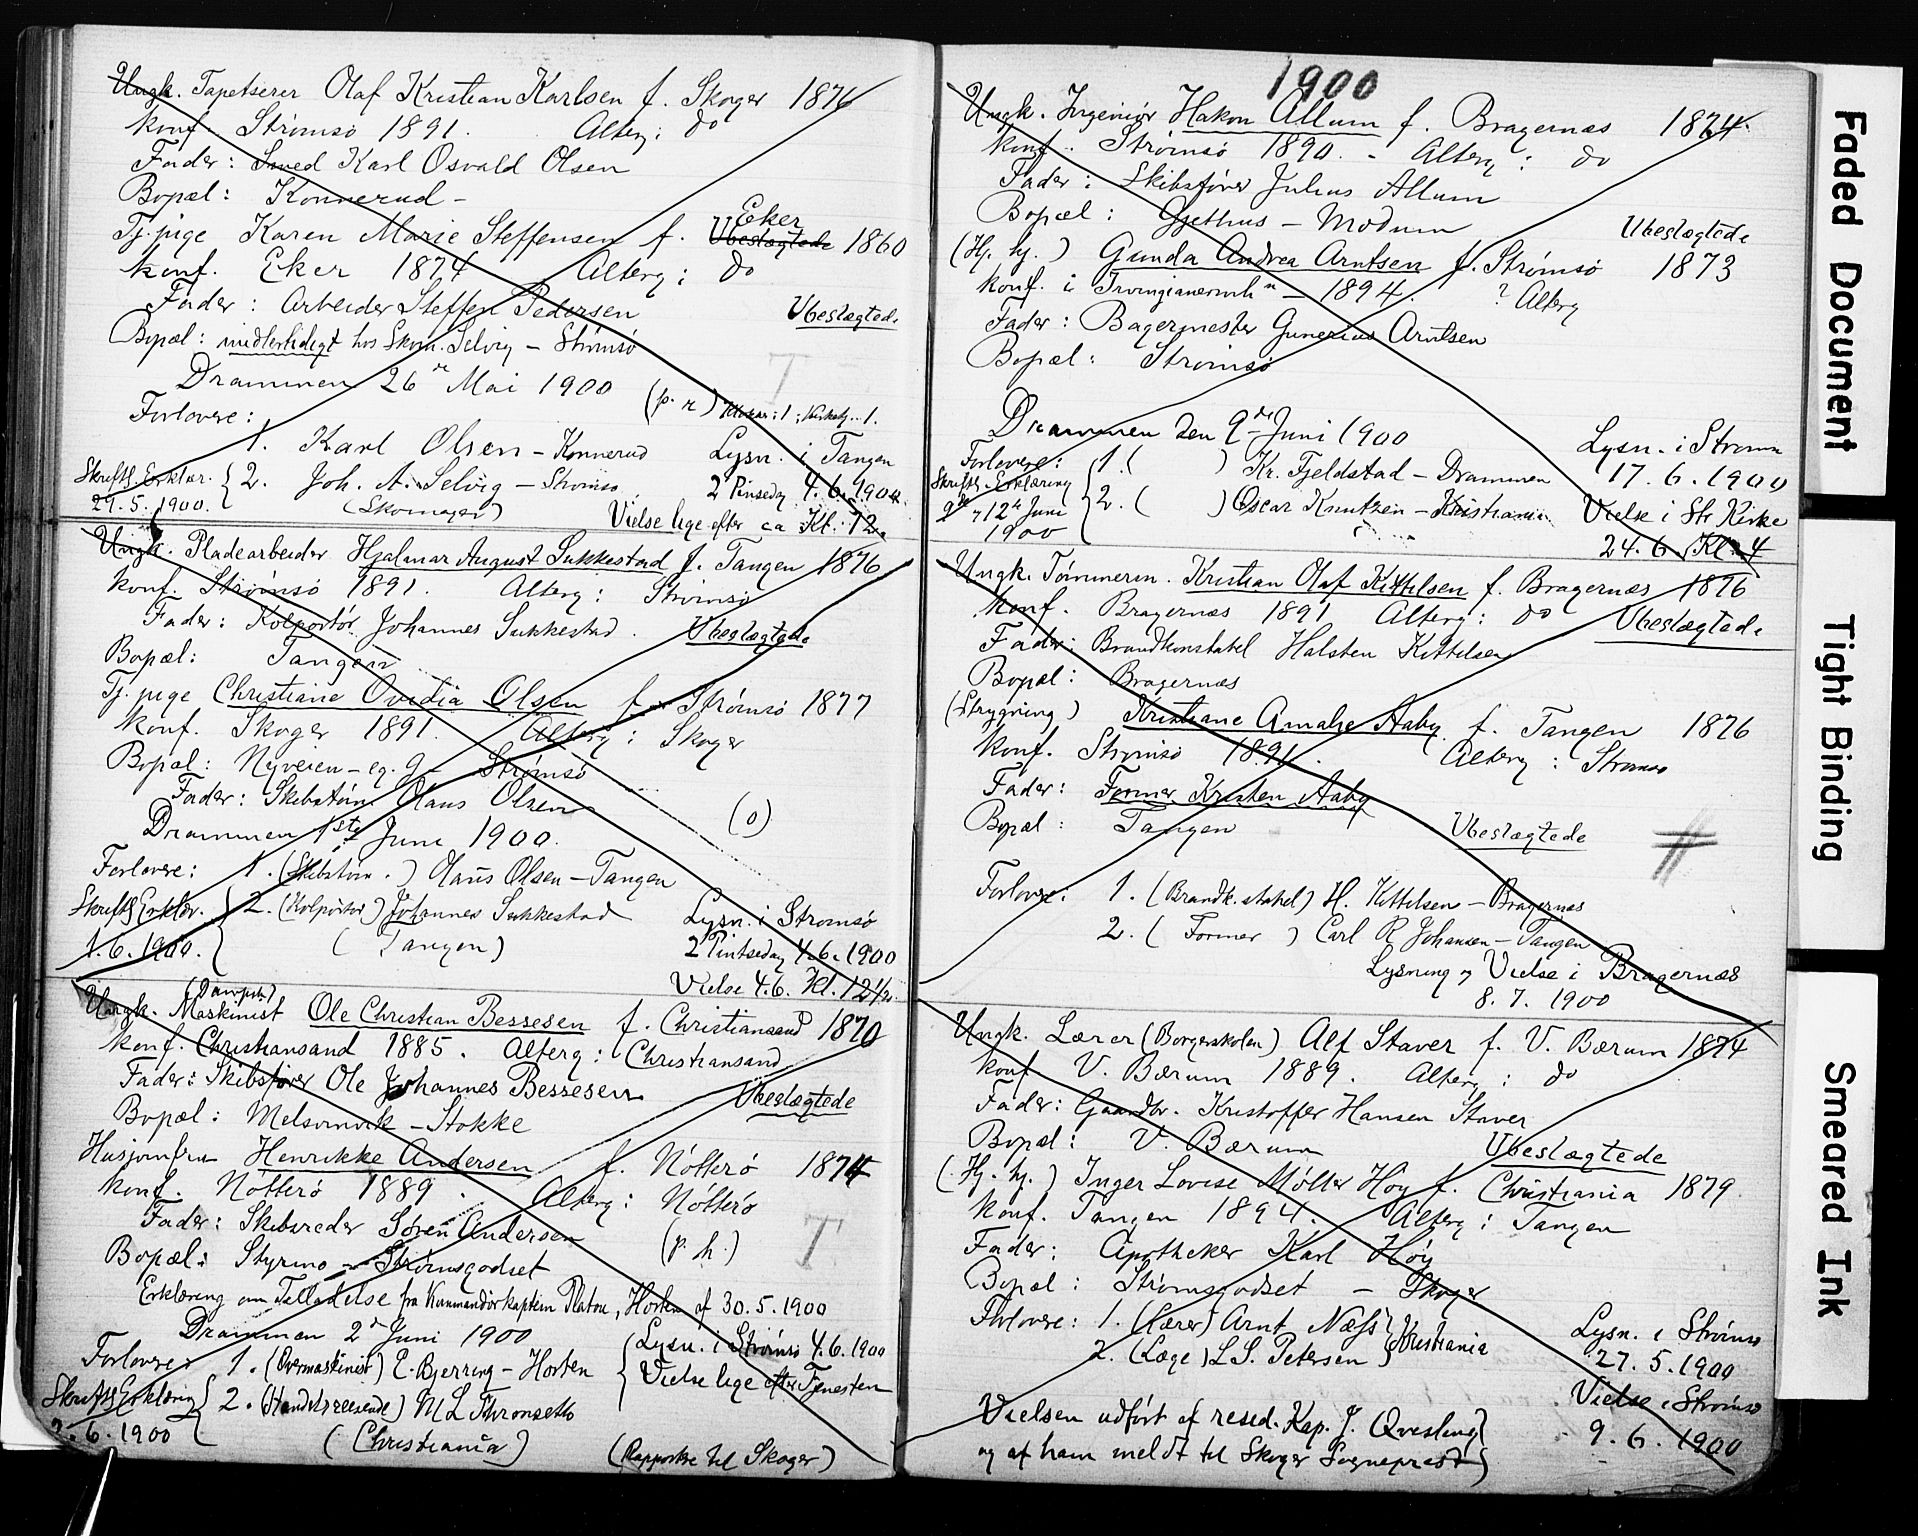 Ungk. Tapetserer Olaf Kristian Karlsen f. Skoger 1876
konf. Strømsø 1891. Alterg: do
Fader: Smed Karl Osvald Olsen
Bopæl: Konnerud -
Eker
Tj. pige Karen Marie Steffensen f. Ubeslægtede 1860
konf. Eker 1874 Alterg: do
Fader: Arbeider Steffen Pedersen
Ubeslægtede
Bopæl: midlertidigt hos Skom. Selvig - Strømsø
Drammen 26de Mai 1900
(p. r) Klokker: 1; Kirketj. 1.
Forlovere:
1. Karl Olsen - Konnerud Lysn. i Tangen
Skriftl. Erklær. 2. Joh. A. Selvig - Strømsø 2 Pinsedag 4.6.1900
29.5.1900. (Skomager) Vielse lige efter ca Kl. 12.
Ungk. Pladearbeider Hjalmar August Sukkestad f. Tangen 1876
konf. Strømsø 1891. Alterg: Strømsø
Fader: Kolportör Johannes Sukkestad. Ubeslægtede
Bopæl: Tangen
Tj. pige Christiane Ovidia Olsen f. Strømsø 1877
konf. Skoger 1891. Alterg: Skoger
Bopæl: Nyveien - eg. g - Strømsø
Fader: Skibstøm. Olaus Olsen
(o)
Drammen 1ste Juni 1900.
Forlovere: 1. (Skibstøm.) Olaus Olsen - Tangen
Skriftl. Erklær. 2. (Kolportør) Johannes Sukkestad Lysn. i Strømsø
1.6.1900. (Tangen) 2 Pintsedag 4.6.1900
Vielse 4.6. Kl. 12½.
(Dampsk.)
Ungk. Maskinist Ole Christian Bessesen f. Christianssand 1870
konf. Christiansand 1885. Alterg: Christiansand
Fader: Skibsfører Ole Johannes Bessesen
Ubeslægtede
Bopæl: Melsomvik - Stokke
Husjomfru Henrikke Andersen f. Nötterö 1874
konf. Nötterö 1889. Alterg: Nötterö
Fader: Skibsreder Sören Andersen
(p. h.) T
Bopæl: Styrmo - Strømsgodset
Erklæring om Tilladelse fra Kommandørkaptein Platou, Horten af 30.5.1900
Drammen 2den Juni 1900
Lysn. i Strømsø 4.6.1900
Forlovere: 1. (Overmaskinist) E. Bjerring - Horten
Vielse lige efter Tjenesten
Skriftl. Erklæring 2. (Handelsreisende) M L Thronsetth
2.6.1900 (Christiania) (Rapportere til Skoger)
1900
Ungk. Ingeniør Hakon Allum f. Bragernæs 1874.
konf. Strømsø 1890. - Alterg: do
Fader: Skibsfører Julius Allum
Bopæl: Gjethus - Modum
Ubeslægtede
(Hj. hj.) Gunda Andrea Arntsen f. Strømsø 1873
konf. i Irvingianermh - 1894. ? Alterg
Fader: Bagermester Gunerius Arntsen
Bopæl: Strømsø
Drammen den 9de Juni 1900
Lysn. i Strømsø
Forlovere: 1. ( ) Kr. Fjeldstad - Drammen 17.6.1900
Skriftl. Erklæring 2. ( ) Oscar Knutzen - Kristiania Vielse i Str. Kirke
9de, 12te Juni
1900
24.6. Kl. 4
Ungk. Tömmerm. Kristian Olaf Kittelsen f. Bragernæs 1876
konf. Bragernæs 1891 Alterg: do
Ubeslægtede
Fader: Brandkonstabel Halsten Kittelsen
Bopæl: Bragernæs
(Strygning) Kristiane Amalie Aaby f. Tangen 1876
konf. Strømsø 1891. Alterg: Strømsø
Fader: Former Kristen Aaby
Bopæl: Tangen Ubeslægtede
Forlovere: 1. (Brandk.stabel) H. Kittelsen - Bragernæs
2. (Former) Carl R Johansen - Tangen
Lysning og Vielse i Bragernæs
8.7.1900
Ungk. Lærer (Borgerskolen) Alf Staver f. V. Bærum 1874
konf V. Bærum 1889. Alterg: do
Fader: Gaardbr. Kristoffer Hansen Staver
Bopæl: V. Bærum Ubeslægtede
(Hj. hj.) Inger Lovise Møller Höy f. Christiania 1879.
Konf. Tangen 1894. Alterg: Tangen
Fader: Apotheker Karl Höy
Bopæl: Strømsgodset - Skoger
Forlovere: 1. (Lærer) Arnt Næss
2. (Læge) L.S. Petersen Kristiania
Lysn. i Strømsø
27.5.1900
Vielse i Strømsø
9.6.1900
Vielsen udfört af resid. Kap. J. Qvesling
og af ham meldt til Skoger Sogneprest
Faded Document
Tight Binding
Smeared Ink